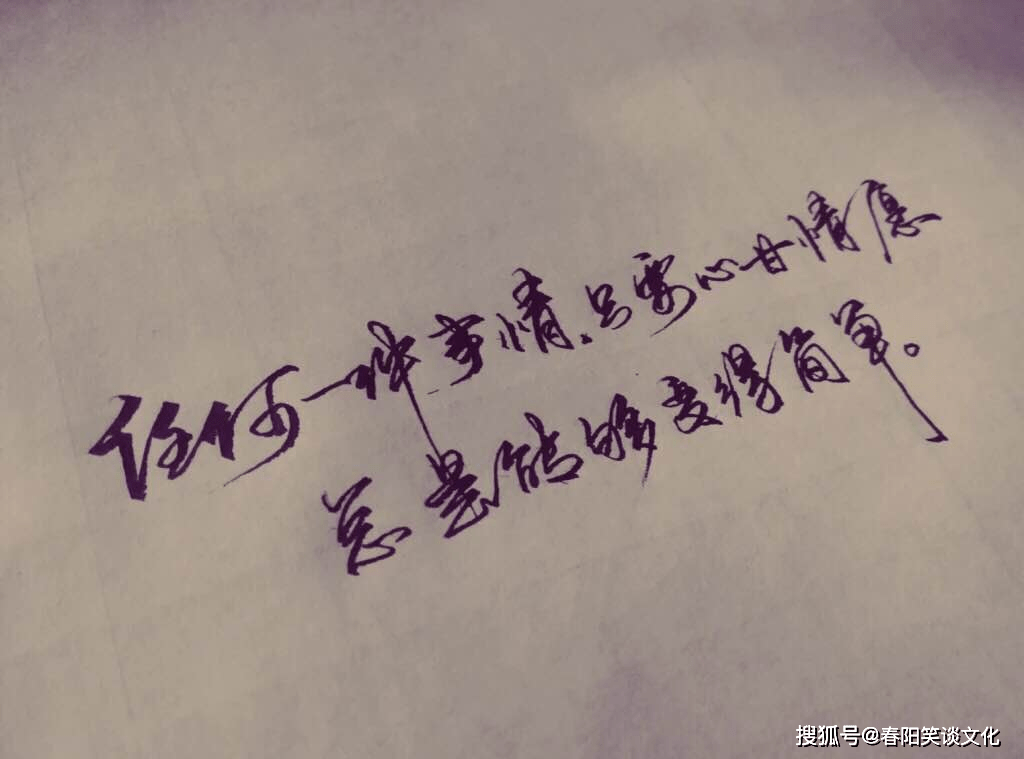 任何一种事情,只要心甘情愿
总是能够变得简单。
搜狐号@春阳笑谈文化